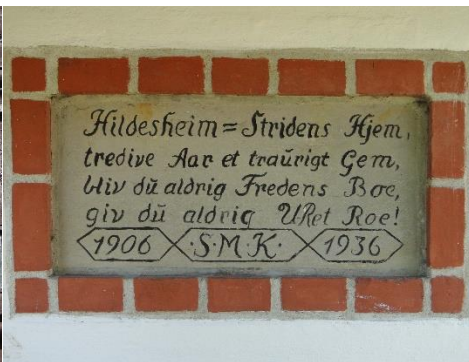 Hildesheim = Stridens Hjem,
tredive Aar et traŭrigt Gem,
bliv dŭ aldrig Fredens Boe,
giv dŭ aldrig URet Roe!
1906 · S·M·K· 1936